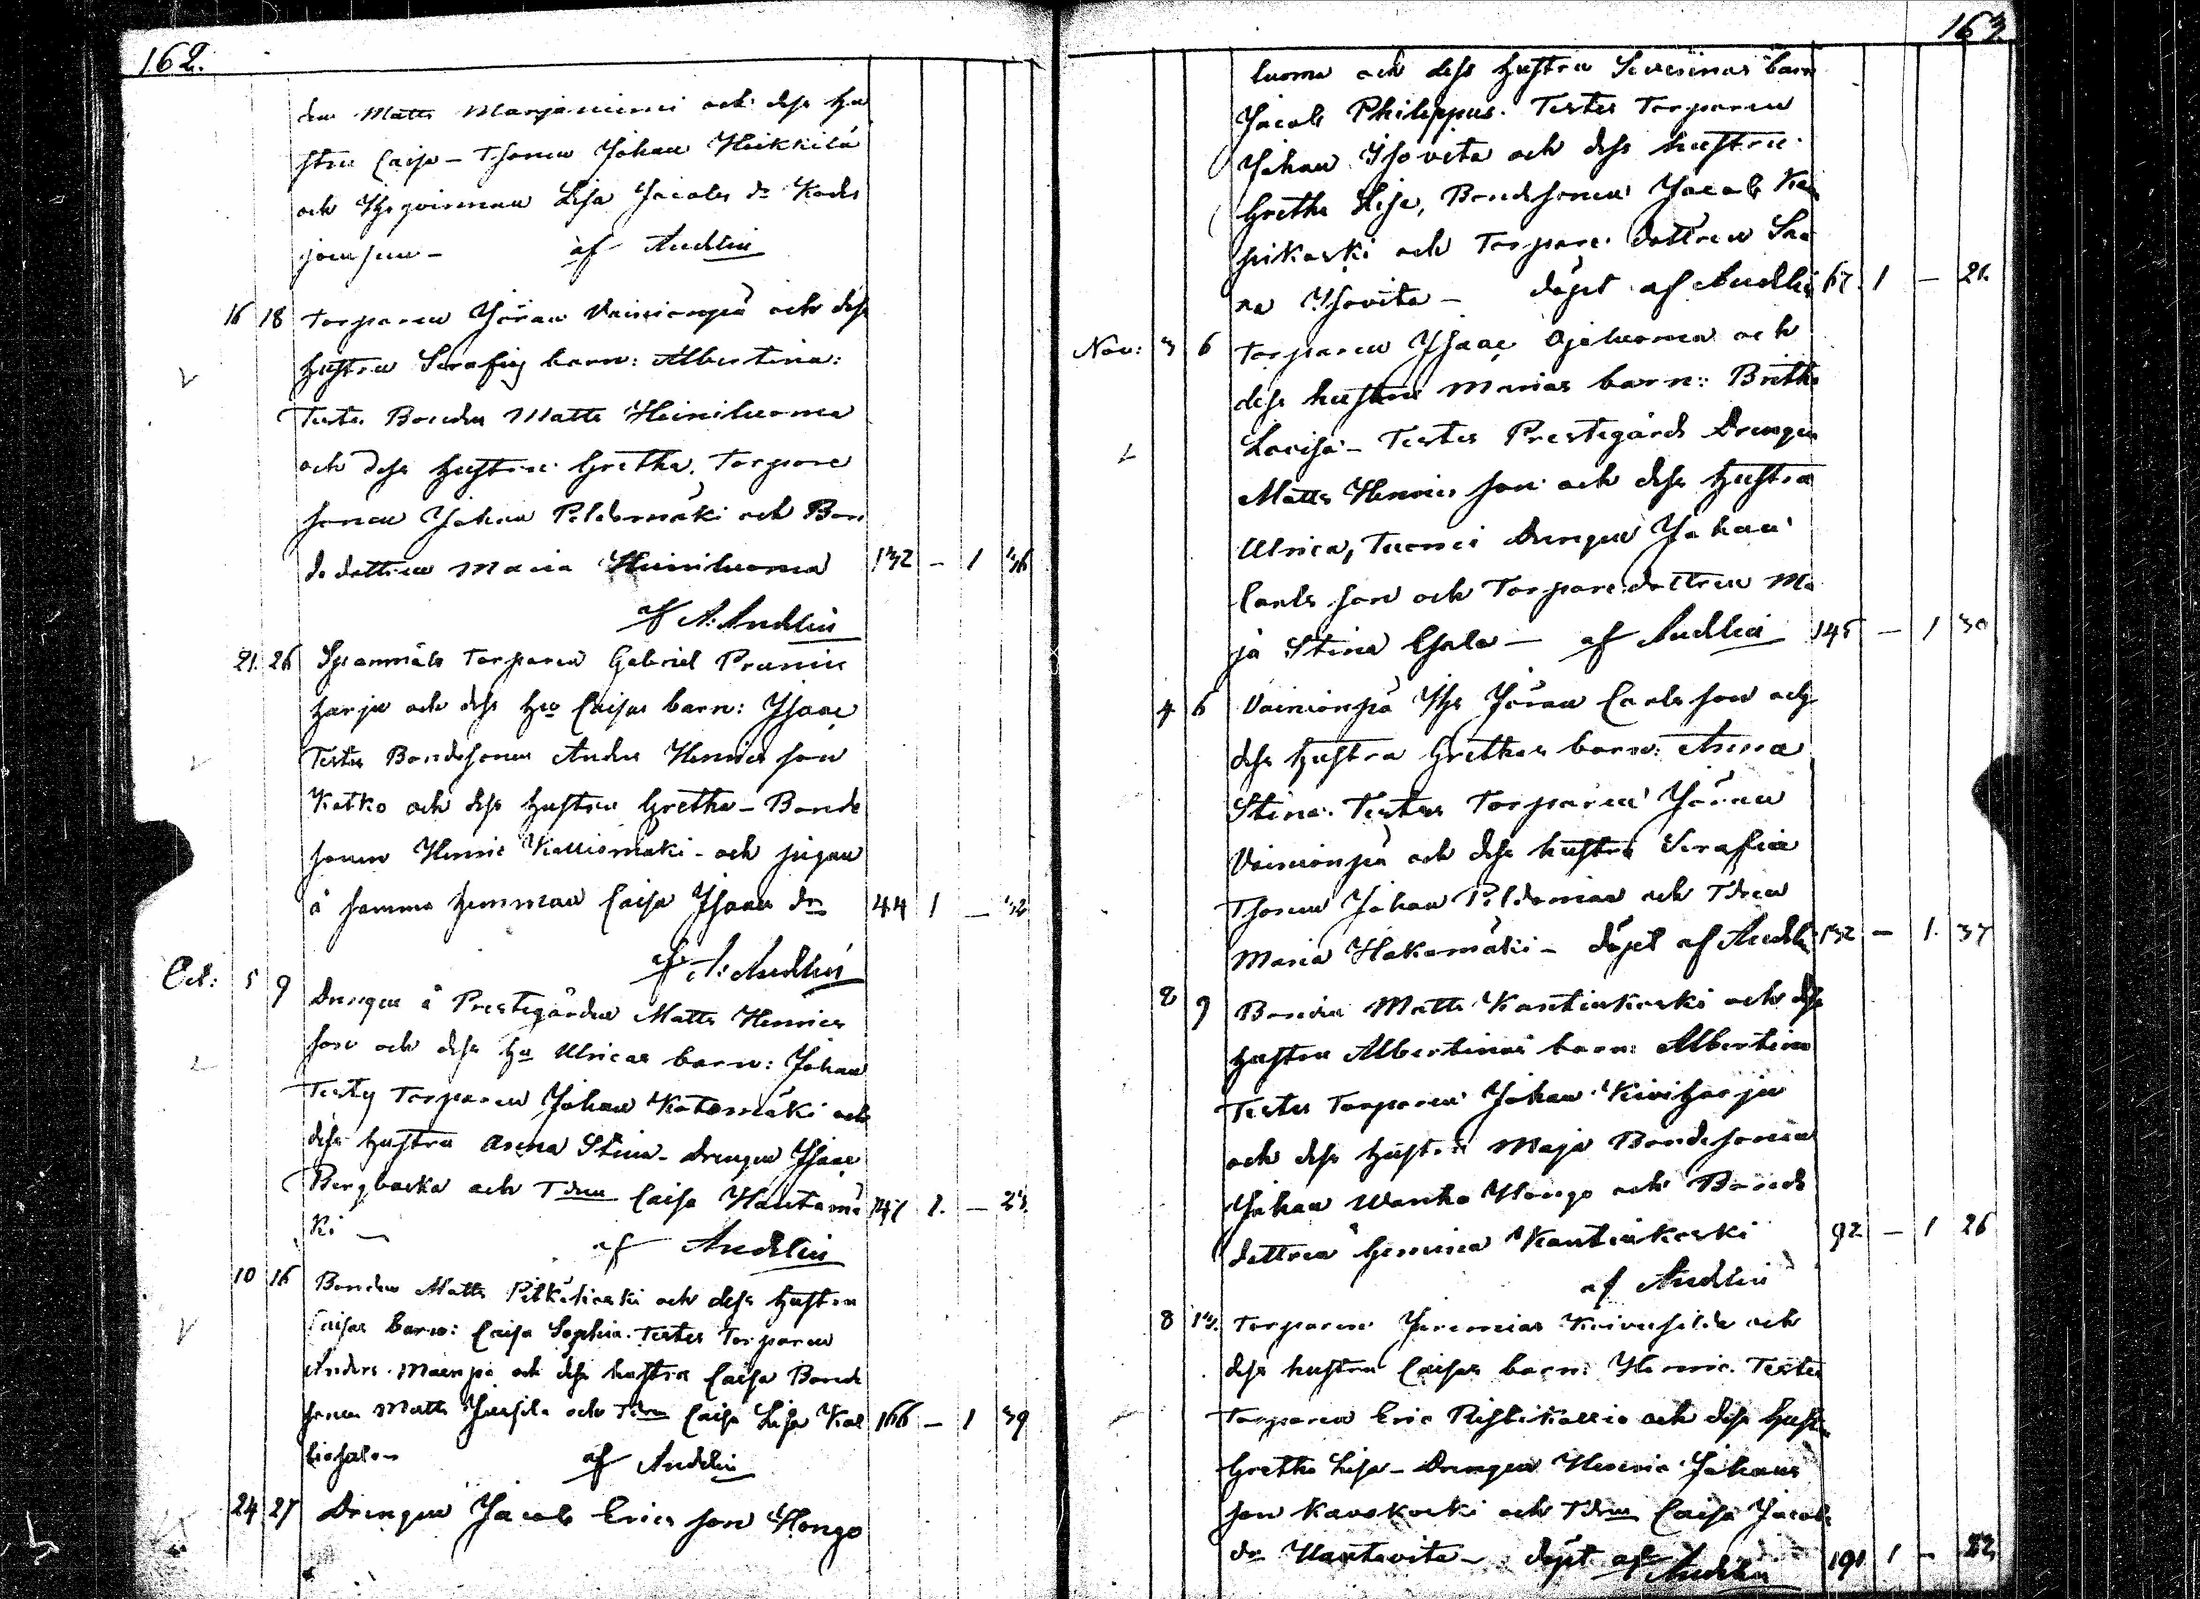 162.
den Matts Marjaniemi och dess hu
stru Caisa - Tsonen Johan Heikkilä
och Ths qvinnan Lisa Jacobs dr Kodes
jonsuu - af Andelin
16 18 Torparen Jöran Vainionpä och dess
hustru Serafias barn: Albertina:
Testes Bonden Matts Heiniluoma
och dess hustru Gretha, Torpare
sonen Johan Peldomäki och Bon
de dottren Maria Heiniluoma 132 - 1 36
af A. Andelin
21. 26 Spannmåls Torparen Gabriel Prunni
harju och dess hu Caisas barn: Isaac
Testes Bondesonen Anders Henrics son
Katko och dess hustru Gretha - Bonde
sonen Henric Kalliomäki - och pigan
å samma hemman Caisa Isaacs dr 44 1 - 32
af A. Andelin
Oct: 5 9 Drengen å Prestegården Matts Henrics
son och dess hu Ulricas barn: Johan
Testes Torparen Johan Katomäki och
dess hustru Anna Stina - Drengen Isaac
Bergbacka och Tdren Caisa Hautamä 147 1. - 23.
ki - af Andelin
10 16 Bonden Matts Pitkäkoski och dess hustru
Caisas barn: Caisa Sophia. Testes Torparen
Anders Mäenpä och dess hustru Caisa Bonde
sonen Matts Jussila och Tdren Caisa Lisa Kal
liosalo - af Andelin 166 - 1 39
24 27 Drengen Jacob Erics son Hongo
163
luoma och dess hustru Severinas barn
Jacob Philippus. Testes Torparen
Johan Isovita och dess hustru
Gretha Lisa, Bondesonen Jacob Kau
pikoski och Torpare dottren San
na Isovita - döpt af Andelin 67. 1 - 21.
Nov: 3 6 Torparen Isaac Ojaluoma och
dess hustru Marias barn: Britha
Lovisa - Testes Prestegårds Drengen
Matts Henrics son och dess hustru
Ulrica, Tuomi Drengen Johan
Carls son och Torpare dottren Ma
ja Stina Ojala - af Andelin 145 - 1 30
4 6 Vainionpä Ths Jöran Carls son och
dess hustru Grethas barn: Anna
Stina. Testes Torparen Jöran
Vainionpä och dess hustru Serafia
Tsonen Johan Peldomäa och Tdren
Maria Hakamäki - döpt af Andelin 132 - 1. 37
8 9 Bonden Matts Kantinkoski och dess
hustru Albertinas barn: Albertina
Testes Torparen Johan Kiviharju
och dess hustru Maja Bondesonen
Johan Wanha Hongo och Bonde
dottren Gemima Kantinkoski 92 - 1 26
af Andelin
8 13. Torparen Jeremias Koivusilda och
dess hustru Caisas barn: Henric. Testes
Torparen Eric Ristikallio och dess hustru
Gretha Lisa - Drengen Henric Johans
son Kauskoski och Tdren Caisa Jacobs
dr Hautavita - döpt af Andelin 191 1 - 23